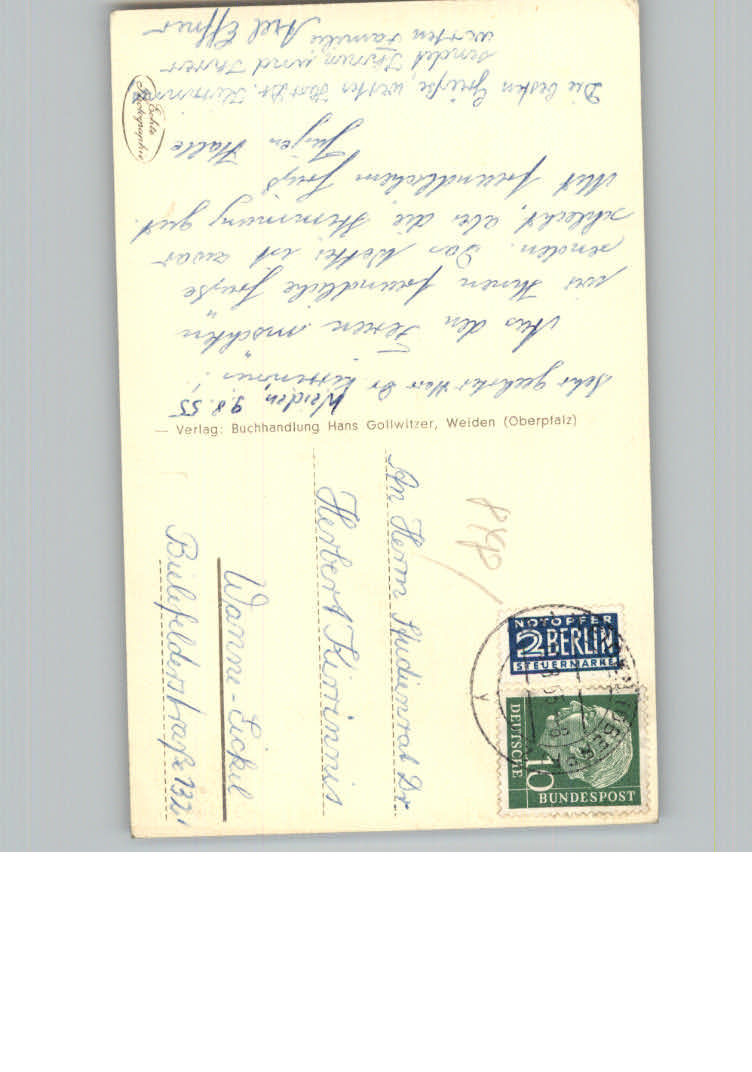 Weiden, 9.8.55
Sehr geehrter Herr Dr. Kirrinnis!
Aus den Ferien möchten
wir Ihnen freundliche Grüße
senden. Das Wetter ist zwar
schlecht, aber die Stimmung gut.
Mit freundlichem Gruß
Jürgen Halle
Die besten Grüße, werter Herr Dr. Kirrinnis
sendet Ihnen und Ihrer
werten Familie Axel Effner
Echte
Photographie
— Verlag: Buchhandlung Hans Gollwitzer, Weiden (Oberpfalz)
An Herrn Studienrat Dr.
Herbert Kirrinnis
Wanne-Eickel
Bielefelderstraße 132
8Y98
NOTOPFER
2 BERLIN
STEUERMARKE
DEUTSCHE
10
BUNDESPOST